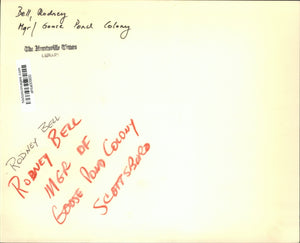 Bell, Rodney
Mgr/ Goose Pond Colony
The Huntsville Times
LIBRARY
RODNEY BELL
RODNEY BELL
MGR OF
GOOSE POND COLONY
SCOTTSBORO